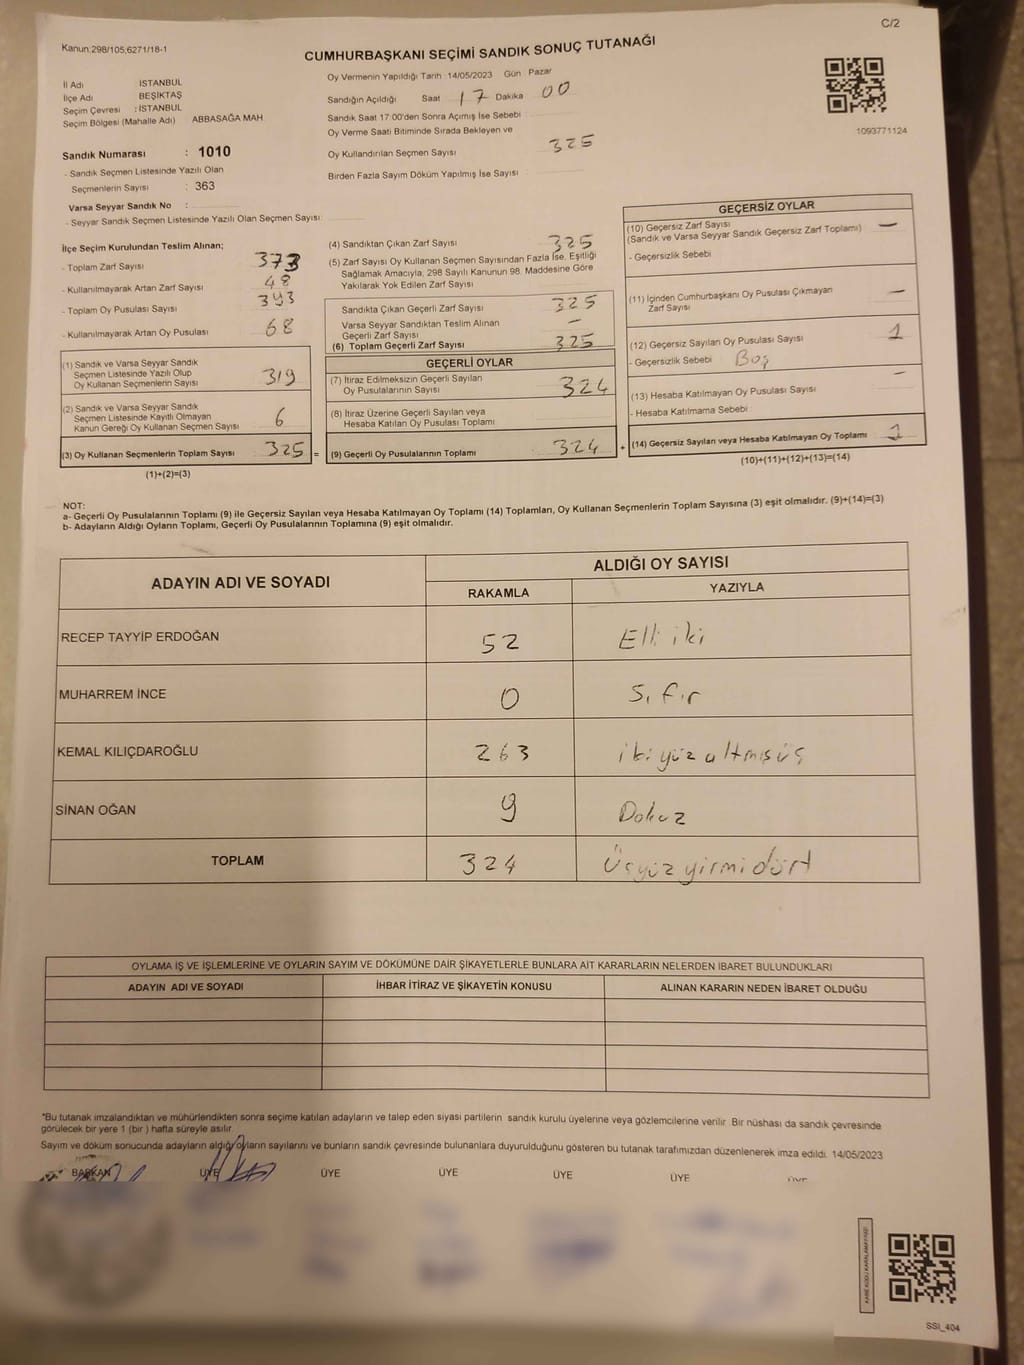 C/2
Kanun:298/105,6271/18-1
CUMHURBAŞKANI SEÇİMİ SANDIK SONUÇ TUTANAĞI
İl Adı : İSTANBUL
İlçe Adı BEŞİKTAŞ
Seçim Çevresi : İSTANBUL
Seçim Bölgesi (Mahalle Adı) ABBASAĞA MAH
Oy Vermenin Yapıldığı Tarih 14/05/2023 Gün Pazar
Sandığın Açıldığı Saat 17 Dakika 00
Sandık Saat 17:00'den Sonra Açımış İse Sebebi
Oy Verme Saati Bitiminde Sırada Bekleyen ve
Oy Kullandırılan Seçmen Sayısı 325
Birden Fazla Sayım Döküm Yapılmış İse Sayısı
1093771124
Sandık Numarası : 1010
- Sandık Seçmen Listesinde Yazılı Olan
Seçmenlerin Sayısı : 363
Varsa Seyyar Sandık No :
- Seyyar Sandık Seçmen Listesinde Yazılı Olan Seçmen Sayısı
İlçe Seçim Kurulundan Teslim Alınan;
- Toplam Zarf Sayısı 373
- Kullanılmayarak Artan Zarf Sayısı 48
- Toplam Oy Pusulası Sayısı 393
- Kullanılmayarak Artan Oy Pusulası 68
(1) Sandık ve Varsa Seyyar Sandık
Seçmen Listesinde Yazılı Olup
Oy Kullanan Seçmenlerin Sayısı 319
(2) Sandık ve Varsa Seyyar Sandık
Seçmen Listesinde Kayıtlı Olmayan
Kanun Gereği Oy Kullanan Seçmen Sayısı 6
(3) Oy Kullanan Seçmenlerin Toplam Sayısı 325 =
(1)+(2)=(3)
(4) Sandıktan Çıkan Zarf Sayısı 325
(5) Zarf Sayısı Oy Kullanan Seçmen Sayısından Fazla İse, Eşitliği
Sağlamak Amacıyla, 298 Sayılı Kanunun 98. Maddesine Göre
Yakılarak Yok Edilen Zarf Sayısı
Sandıkta Çıkan Geçerli Zarf Sayısı 325
Varsa Seyyar Sandıktan Teslim Alınan
Geçerli Zarf Sayısı —
(6) Toplam Geçerli Zarf Sayısı 325
GEÇERLİ OYLAR
(7) İtiraz Edilmeksizin Geçerli Sayılan
Oy Pusulalarının Sayısı 324
(8) İtiraz Üzerine Geçerli Sayılan veya
Hesaba Katılan Oy Pusulası Toplamı
(9) Geçerli Oy Pusulalarının Toplamı 324 +
GEÇERSİZ OYLAR
(10) Geçersiz Zarf Sayısı —
(Sandık ve Varsa Seyyar Sandık Geçersiz Zarf Toplamı)
- Geçersizlik Sebebi
(11) İçinden Cumhurbaşkanı Oy Pusulası Çıkmayan
Zarf Sayısı —
(12) Geçersiz Sayılan Oy Pusulası Sayısı 1
- Geçersizlik Sebebi Boş
(13) Hesaba Katılmayan Oy Pusulası Sayısı —
- Hesaba Katılmama Sebebi
(14) Geçersiz Sayılan veya Hesaba Katılmayan Oy Toplamı 1
(10)+(11)+(12)+(13)=(14)
NOT:
a- Geçerli Oy Pusulalarının Toplamı (9) ile Geçersiz Sayılan veya Hesaba Katılmayan Oy Toplamı (14) Toplamları, Oy Kullanan Seçmenlerin Toplam Sayısına (3) eşit olmalıdır. (9)+(14)=(3)
b- Adayların Aldığı Oyların Toplamı, Geçerli Oy Pusulalarının Toplamına (9) eşit olmalıdır.
ADAYIN ADI VE SOYADI ALDIĞI OY SAYISI
RAKAMLA YAZIYLA
RECEP TAYYİP ERDOĞAN 52 Elli iki
MUHARREM İNCE 0 Sıfır
KEMAL KILIÇDAROĞLU 263 iki yüz altmış üç
SİNAN OĞAN 9 Dokuz
TOPLAM 324 Üçyüz yirmi dört
OYLAMA İŞ VE İŞLEMLERİNE VE OYLARIN SAYIM VE DÖKÜMÜNE DAİR ŞİKAYETLERLE BUNLARA AİT KARARLARIN NELERDEN İBARET BULUNDUKLARI
ADAYIN ADI VE SOYADI İHBAR İTİRAZ VE ŞİKAYETİN KONUSU ALINAN KARARIN NEDEN İBARET OLDUĞU
*Bu tutanak imzalandıktan ve mühürlendikten sonra seçime katılan adayların ve talep eden siyasi partilerin sandık kurulu üyelerine veya gözlemcilerine verilir. Bir nüshası da sandık çevresinde
görülecek bir yere 1 (bir ) hafta süreyle asılır.
Sayım ve döküm sonucunda adayların aldığı oyların sayılarını ve bunların sandık çevresinde bulunanlara duyurulduğunu gösteren bu tutanak tarafımızdan düzenlenerek imza edildi. 14/05/2023
BAŞKAN ÜYE ÜYE ÜYE ÜYE ÜYE ÜYE
KAREKODU KARALAMAYINIZ!
SSI_404